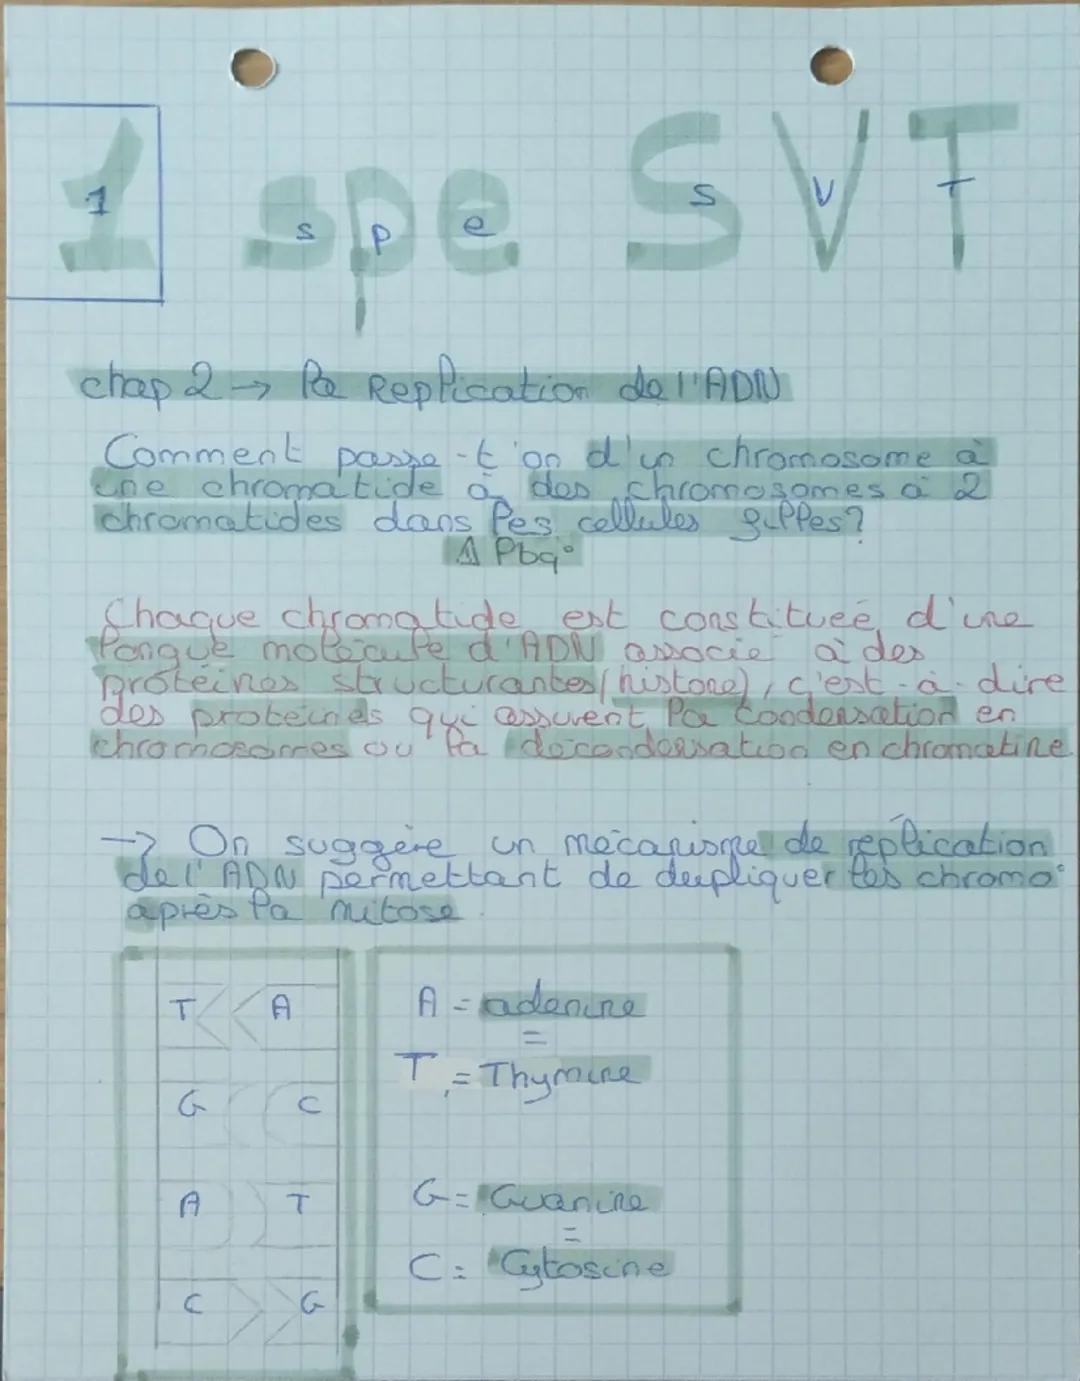 1 spe SVT
chap 2 → la Replication de l'ADN
Comment passe-t'on d'un chromosome à
une chromatide à des chromosomes à 2
chromatides dans les cellules filles?
Pbq°
Chaque chromatide est constitueé d'une
longue molécule d'ADN associé à des
protéines structurantes (histone), c'est-à-dire
des proteines qui assurent la condensation en
chromosomes ou la décondensation en chromatine
→ On suggère un mécanisme de réplication
de l'ADN permettant de dupliquer les chromo°
après la mitose.
T A
G C
A T
C G
A = adenine
=
T = Thymine
G = Guanine
=
C = Cytosine